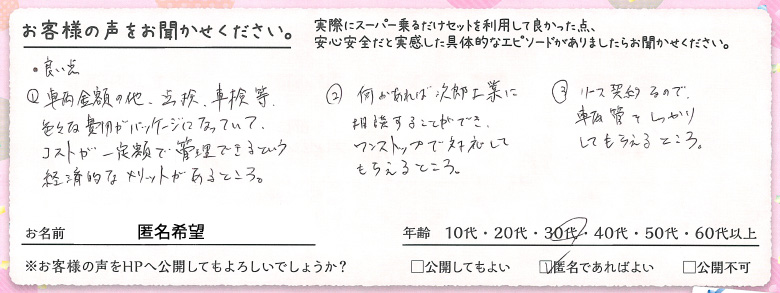 お客様の声をお聞かせください。
実際にスーパー乗るだけセットを利用して良かった点、
安心安全だと実感した具体的なエピソードがありましたらお聞かせください。
・良い点
① 車両金額の他、点検、車検等、
色々な費用がパッケージになっていて、
コストが一定額で管理できるという
経済的なメリットがあるところ。
② 何かあれば次郎工業に
相談することができ、
ワンストップで対応して
もらえるところ。
③ リース契約なので、
車両管理をしっかり
してもらえるところ。
お名前 匿名希望
年齢 10代・20代・30代・40代・50代・60代以上
※お客様の声をHPへ公開してもよろしいでしょうか? □公開してもよい ☑匿名であればよい □公開不可